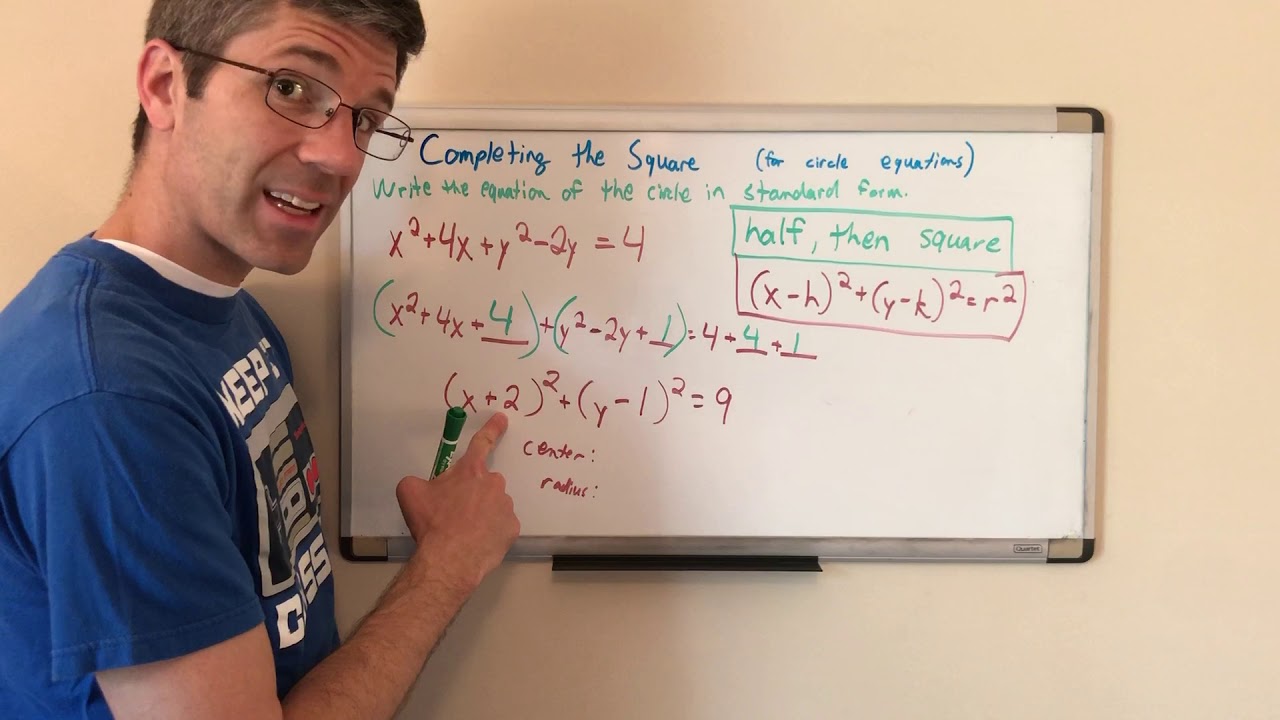 Completing the Square (for circle equations)
Write the equation of the circle in standard form.
x²+4x+y²-2y=4
half, then square
(x-h)²+(y-k)²=r²
(x²+4x+4)+(y²-2y+1)=4+4+1
(x+2)²+(y-1)²=9
center:
radius:
Quartet
KEEP